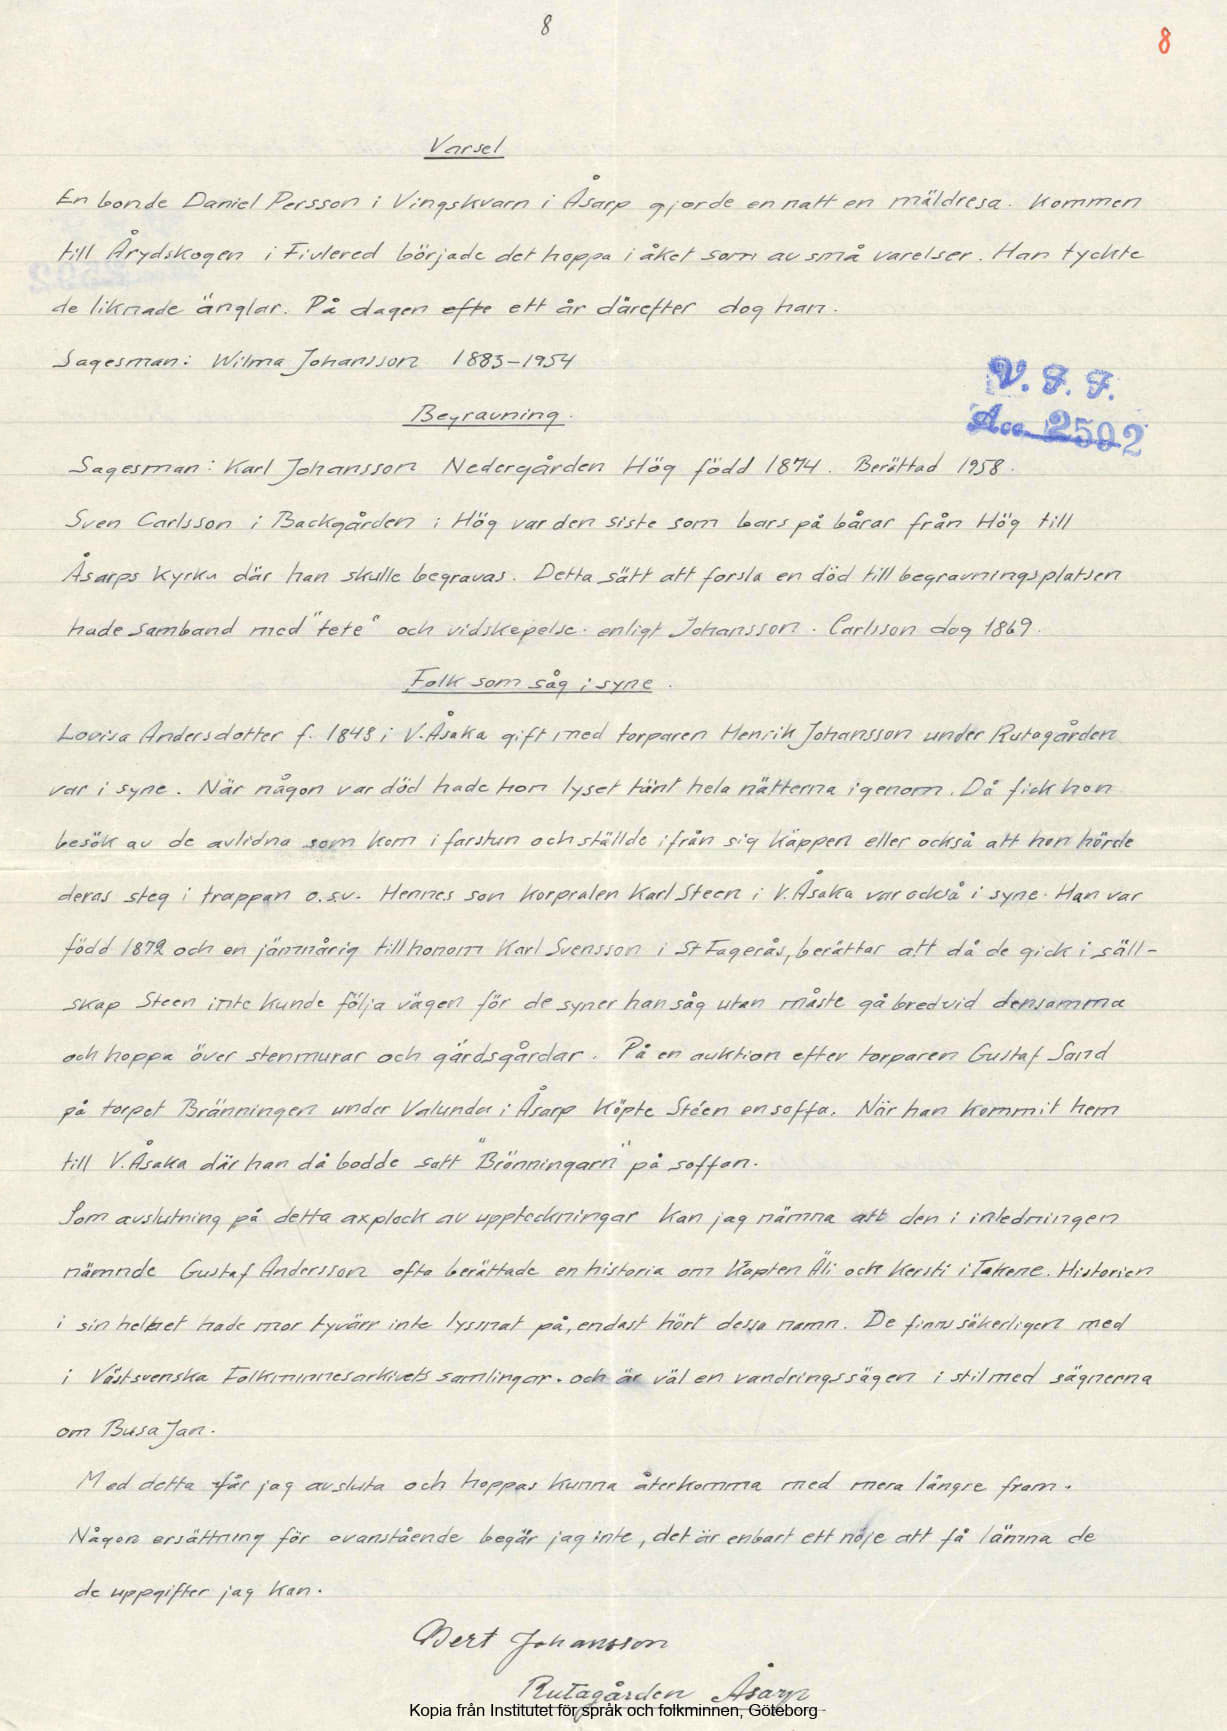 8
8
Varsel
En bonde Daniel Persson i Vingskvarn i Åsarp gjorde en natt en mäldresa. Kommen
till Årydskogen i Fivlered började det hoppa i åket som av små varelser. Han tyckte
de liknade änglar. På dagen efte ett år därefter dog han.
Sagesman: Wilma Johansson 1883-1954
V. F. F.
Begravning.
Acc. 2592
Sagesman: Karl Johansson Nedergården Hög född 1874. Berättad 1958.
Sven Carlsson i Backgården i Hög var den siste som bars på bårar från Hög till
Åsarps kyrka där han skulle begravas. Detta sätt att forsla en död till begravningsplatsen
hade samband med "tete" och vidskepelse. enligt Johansson. Carlsson dog 1869.
Folk som såg i syne.
Lovisa Andersdotter f. 1848 i V. Åsaka gift med torparen Henrik Johansson under Rutagården
var i syne. När någon var död hade hon lyset tänt hela nätterna igenom. Då fick hon
besök av de avlidna som kom i farstun och ställde ifrån sig käppen eller också att hon hörde
deras steg i trappan o.s.v. Hennes son korpralen Karl Steen i V. Åsaka var också i syne. Han var
född 1872 och en jämnårig till honom Karl Svensson i St Fagerås, berättar att då de gick i säll-
skap Steen inte kunde följa vägen för de syner han såg utan måste gå bredvid densamma
och hoppa över stenmurar och gärdsgårdar. På en auktion efter torparen Gustaf Sand
på torpet Bränningen under Valunda i Åsarp köpte Stéen en soffa. När han kommit hem
till V. Åsaka där han då bodde satt "Bränningarn" på soffan.
Som avslutning på detta axplock av uppteckningar kan jag nämna att den i inledningen
nämnde Gustaf Andersson ofta berättade en historia om Kapten Äli och Kersti i Takene. Historien
i sin helhet hade mor tyvärr inte lyssnat på, endast hört dessa namn. De finns säkerligen med
i Västsvenska Folkminnesarkivets samlingar. och är väl en vandringssägen i stil med sägnerna
om Busa Jan.
Med detta får jag avsluta och hoppas kunna återkomma med mera längre fram.
Någon ersättning för ovanstående begär jag inte, det är enbart ett nöje att få lämna de
de uppgifter jag kan.
Bert Johansson
Rutagården Åsarp
Kopia från Institutet för språk och folkminnen, Göteborg